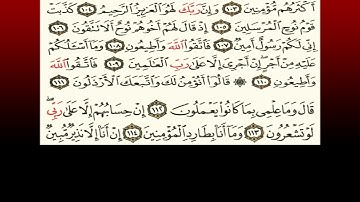 أَكْثَرُهُم مُّؤْمِنِينَ ١٠٣ وَإِنَّ رَبَّكَ لَهُوَ الْعَزِيزُ الرَّحِيمُ ١٠٤ كَذَّبَتْ
قَوْمُ نُوحٍ الْمُرْسَلِينَ ١٠٥ إِذْ قَالَ لَهُمْ أَخُوهُمْ نُوحٌ أَلَا تَتَّقُونَ ١٠٦
إِنِّي لَكُمْ رَسُولٌ أَمِينٌ ١٠٧ فَاتَّقُوا اللَّهَ وَأَطِيعُونِ ١٠٨ وَمَا أَسْأَلُكُمْ
عَلَيْهِ مِنْ أَجْرٍ إِنْ أَجْرِيَ إِلَّا عَلَى رَبِّ الْعَالَمِينَ ١٠٩ فَاتَّقُوا اللَّهَ
وَأَطِيعُونِ ١١٠ قَالُوا أَنُؤْمِنُ لَكَ وَاتَّبَعَكَ الْأَرْذَلُونَ ١١١
قَالَ وَمَا عِلْمِي بِمَا كَانُوا يَعْمَلُونَ ١١٢ إِنْ حِسَابُهُمْ إِلَّا عَلَى رَبِّي
لَوْ تَشْعُرُونَ ١١٣ وَمَا أَنَا بِطَارِدِ الْمُؤْمِنِينَ ١١٤ إِنْ أَنَا إِلَّا نَذِيرٌ مُّبِينٌ